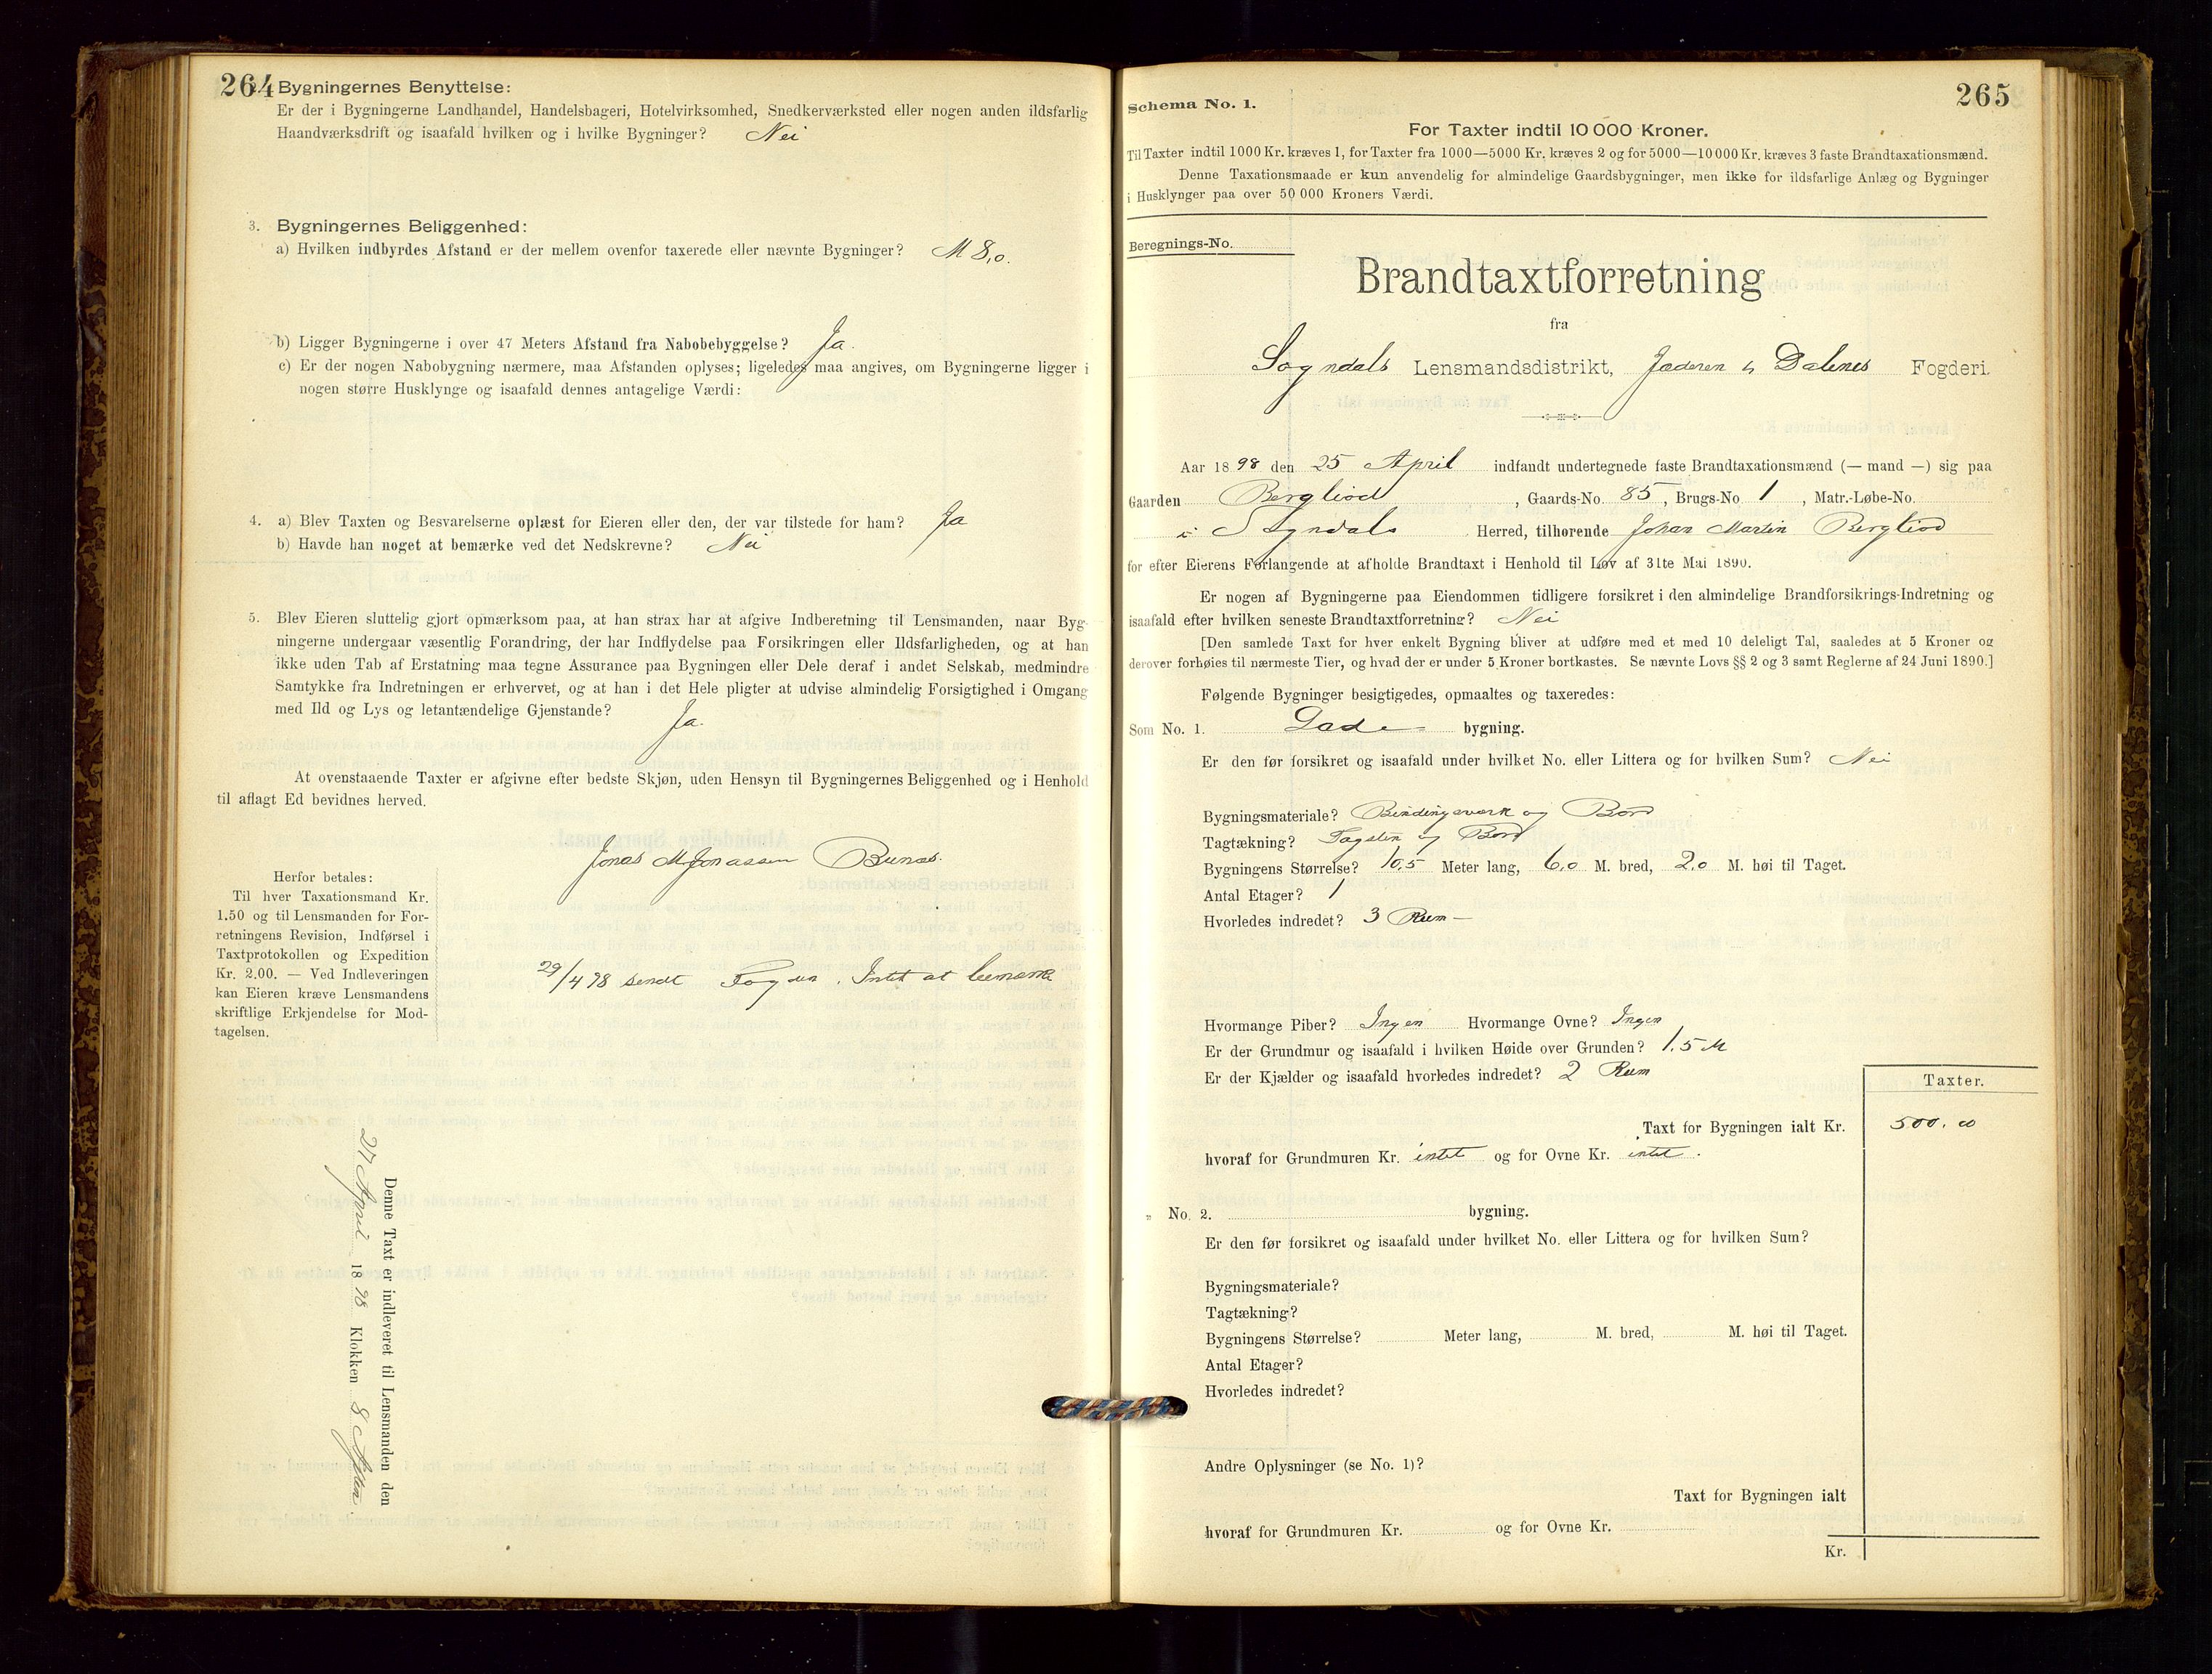 264
Bygningernes Benyttelse:
Er der i Bygningerne Landhandel, Handelsbageri, Hotelvirksomhed, Snedkerværksted eller nogen anden ildsfarlig
Haandværksdrift og isaafald hvilken og i hvilke Bygninger? Nei
3. Bygningernes Beliggenhed:
a) Hvilken indbyrdes Afstand er der mellem ovenfor taxerede eller nævnte Bygninger? M 8,0.
b) Ligger Bygningerne i over 47 Meters Afstand fra Nabobebyggelse? Ja.
c) Er der nogen Nabobygning nærmere, maa Afstanden oplyses; ligeledes maa angives, om Bygningerne ligger i
nogen større Husklynge og isaafald dennes antagelige Værdi:
4. a) Blev Taxten og Besvarelserne oplæst for Eieren eller den, der var tilstede for ham? Ja
b) Havde han noget at bemærke ved det Nedskrevne? Nei
5. Blev Eieren sluttelig gjort opmærksom paa, at han strax har at afgive Indberetning til Lensmanden, naar Byg-
ningerne undergaar væsentlig Forandring, der har Indflydelse paa Forsikringen eller Ildsfarligheden, og at han
ikke uden Tab af Erstatning maa tegne Assurance paa Bygningen eller Dele deraf i andet Selskab, medmindre
Samtykke fra Indretningen er erhvervet, og at han i det Hele pligter at udvise almindelig Forsigtighed i Omgang
med Ild og Lys og letantændelige Gjenstande? Ja.
At ovenstaaende Taxter er afgivne efter bedste Skjøn, uden Hensyn til Bygningernes Beliggenhed og i Henhold
til aflagt Ed bevidnes herved.
Jonas M Jonassen Bunæs.
Herfor betales:
Til hver Taxationsmand Kr.
1.50 og til Lensmanden for For-
retningens Revision, Indførsel i
Taxtprotokollen og Expedition
Kr. 2.00. — Ved Indleveringen
kan Eieren kræve Lensmandens
skriftlige Erkjendelse for Mod-
tagelsen.
29/4 98 sendt Fogden. Intet at bemærke
Denne Taxt er indleveret til Lensmanden den
27 April 1898 Klokken 8 Aften
265
Schema No. 1.
For Taxter indtil 10 000 Kroner.
Til Taxter indtil 1000 Kr. kræves 1, for Taxter fra 1000—5000 Kr. kræves 2 og for 5000—10 000 Kr. kræves 3 faste Brandtaxationsmænd.
Denne Taxationsmaade er kun anvendelig for almindelige Gaardsbygninger, men ikke for ildsfarlige Anlæg og Bygninger
i Husklynger paa over 50 000 Kroners Værdi.
Beregnings-No.
Brandtaxtforretning
fra
Sogndals Lensmandsdistrikt, Jæderen & Dalenes Fogderi
Aar 1898 den 25 April indfandt undertegnede faste Brandtaxationsmænd (— mand —) sig paa
Gaarden Bergliod, Gaards-No. 85, Brugs-No. 1, Matr.-Løbe-No.
i Sogndals Herred, tilhørende Johan Martin Bergliod
for efter Eierens Forlangende at afholde Brandtaxt i Henhold til Lov af 31te Mai 1890.
Er nogen af Bygningerne paa Eiendommen tidligere forsikret i den almindelige Brandforsikrings-Indretning og
isaafald efter hvilken seneste Brandtaxtforretning? Nei
[Den samlede Taxt for hver enkelt Bygning bliver at udføre med et med 10 deleligt Tal, saaledes at 5 Kroner og
derover forhøies til nærmeste Tier, og hvad der er under 5 Kroner bortkastes. Se nævnte Lovs §§ 2 og 3 samt Reglerne af 24 Juni 1890.]
Følgende Bygninger besigtigedes, opmaaltes og taxeredes:
Som No. 1. Lade bygning.
Er den før forsikret og isaafald under hvilket No. eller Littera og for hvilken Sum? Nei
Bygningsmateriale? Bindingsværk og Bord
Tagtækning? Tagsten og Bord
Bygningens Størrelse? 10,5 Meter lang, 6,0 M. bred, 2,0 M. høi til Taget.
Antal Etager? 1
Hvorledes indredet? 3 Rum —
Hvormange Piber? Ingen Hvormange Ovne? Ingen
Er der Grundmur og isaafald i hvilken Høide over Grunden? 1.5 M
Er der Kjælder og isaafald hvorledes indredet? 2 Rum
Taxter.
Taxt for Bygningen ialt Kr. 500. 00
hvoraf for Grundmuren Kr. intet og for Ovne Kr. intet.
„ No. 2. bygning.
Er den før forsikret og isaafald under hvilket No. eller Littera og for hvilken Sum?
Bygningsmateriale?
Tagtækning?
Bygningens Størrelse? Meter lang, M. bred, M. høi til Taget.
Antal Etager?
Hvorledes indredet?
Andre Oplysninger (se No. 1)?
Taxt for Bygningen ialt
hvoraf for Grundmuren Kr. og for Ovne Kr.
Kr.